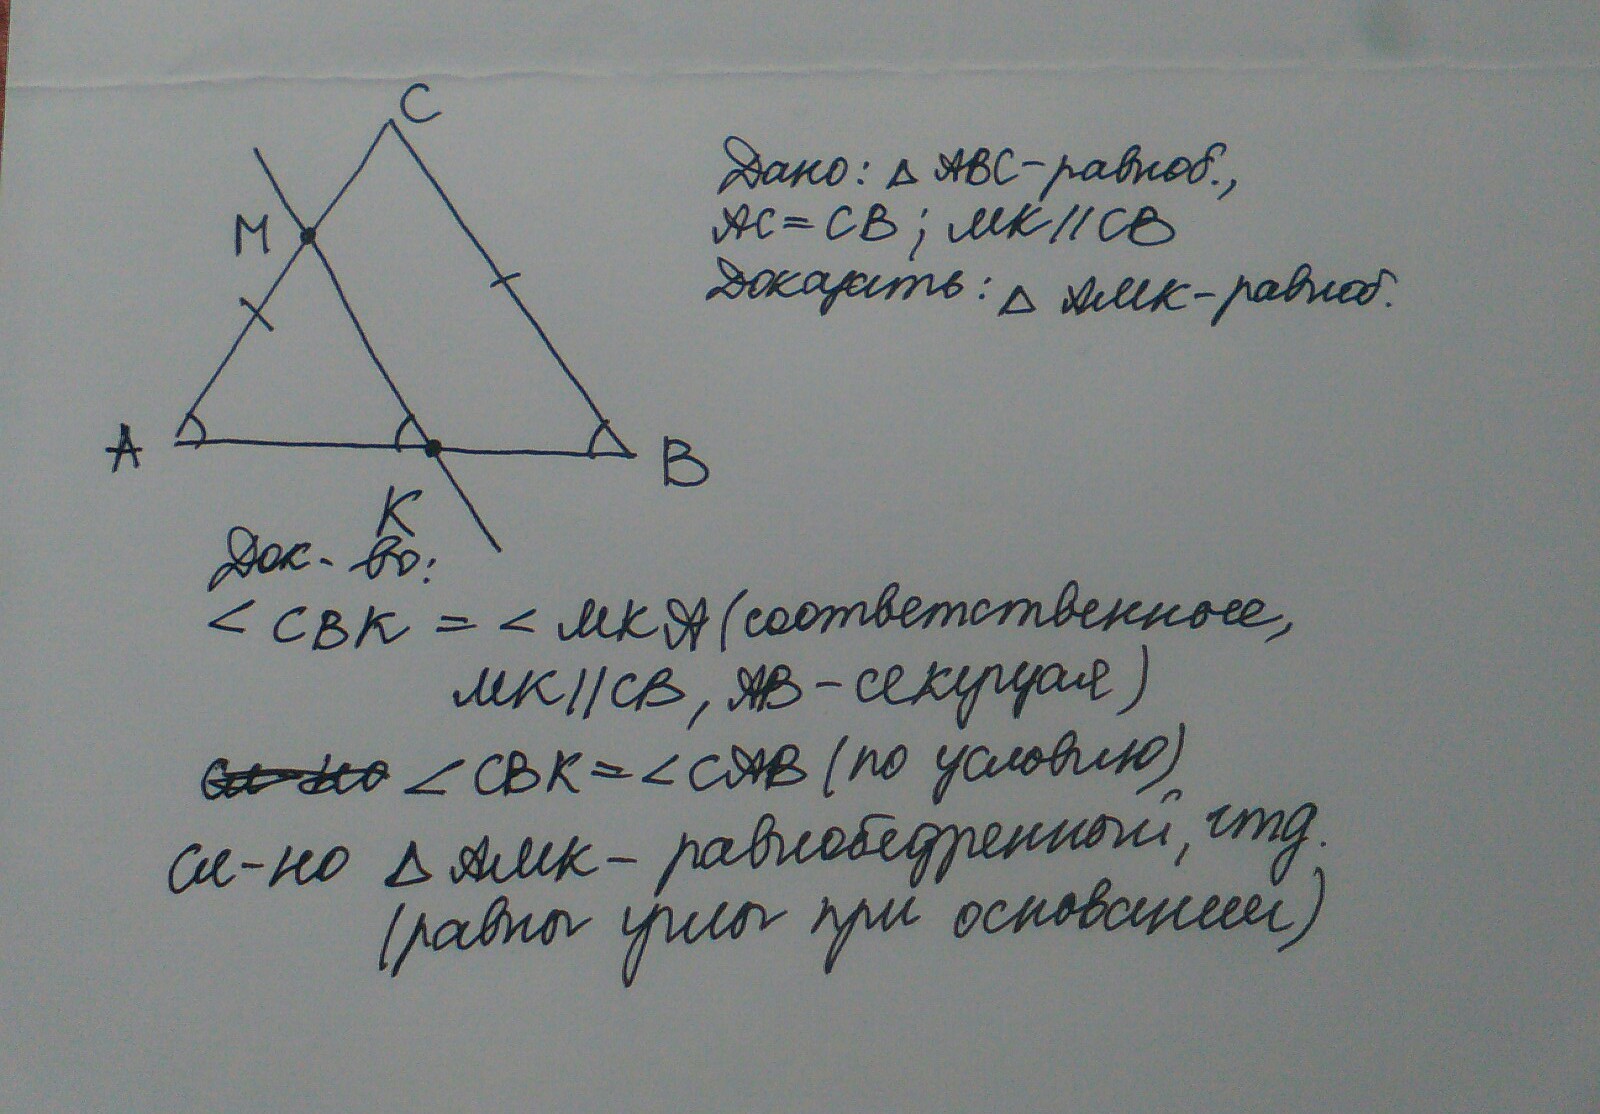 C
M
A
B
K
Дано: △ ABC-равноб.,
AC = CB ; MK // CB
Доказать: △ AMK-равноб.
Док-во:
< CBK = < MKA (соответственные,
MK // CB, AB - секущая)
∠ CBK = ∠ CAB (по условию)
Сл-но △ AMK - равнобедренный, чтд.
(равны углы при основании)